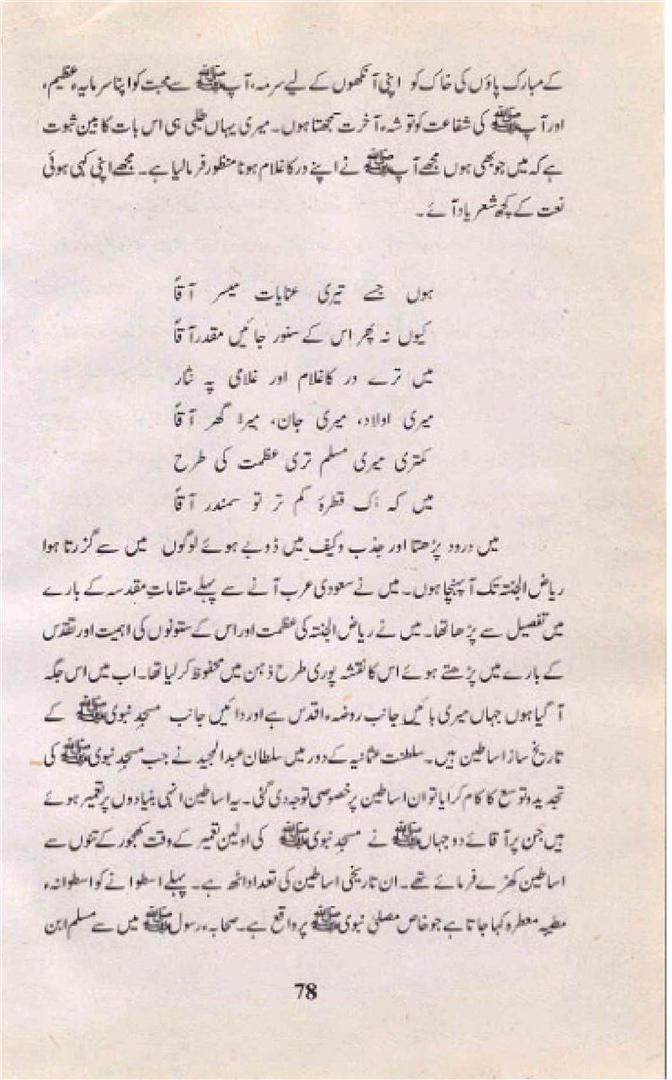 کے مبارک پاؤں کی خاک کو اپنی آنکھوں کے لیے سرمہ، آپ ﷺ سے محبت کو اپنا سرمایہء عظیم،
اور آپ ﷺ کی شفاعت کو توشہء آخرت سمجھتا ہوں۔ میری یہاں طلبی ہی اس بات کا بین ثبوت
ہے کہ میں جو بھی ہوں مجھے آپ ﷺ نے اپنے در کا غلام ہونا منظور فرما لیا ہے۔ مجھے اپنی کہی ہوئی
نعت کے کچھ شعر یاد آئے۔
ہوں جسے تیری عنایات میسر آقاؐ
کیوں نہ پھر اس کے سنور جائیں مقدر آقاؐ
میں ترے در کا غلام اور غلامی پہ نثار
میری اولاد، میری جان، میرا گھر آقاؐ
کمتری میری مسلم تری عظمت کی طرح
میں کہ اک قطرۂ کم تر تو سمندر آقاؐ
میں درود پڑھتا اور جذب و کیف میں ڈوبے ہوئے لوگوں میں سے گزرتا ہوا
ریاض الجنتہ تک آ پہنچا ہوں۔ میں نے سعودی عرب آنے سے پہلے مقاماتِ مقدسہ کے بارے
میں تفصیل سے پڑھا تھا۔ میں نے ریاض الجنتہ کی عظمت اور اس کے ستونوں کی اہمیت اور تقدس
کے بارے میں پڑھتے ہوئے اس کا نقشہ پوری طرح ذہن میں محفوظ کر لیا تھا۔ اب میں اس جگہ
آ گیا ہوں جہاں میری بائیں جانب روضہء اقدس ہے اور دائیں جانب مسجدِ نبوی ﷺ کے
تاریخ ساز اساطین ہیں۔ سلطنت عثمانیہ کے دور میں سلطان عبدالمجید نے جب مسجدِ نبوی ﷺ کی
تجدید و توسیع کا کام کرایا تو ان اساطین پر خصوصی توجہ دی گئی۔ یہ اساطین انہی بنیادوں پر تعمیر ہوئے
ہیں جن پر آقائے دو جہاں ﷺ نے مسجدِ نبوی ﷺ کی اولین تعمیر کے وقت کھجور کے تنوں سے
اساطین کھڑے فرمائے تھے۔ ان تاریخی اساطین کی تعداد اٹھ ہے۔ پہلے اسطوانے کو اسطوانہء
مطیبہ معطرہ کہا جاتا ہے جو خاص مصلیٰ نبوی ﷺ پر واقع ہے۔ صحابہء رسول ﷺ میں سے مسلم ابن
78